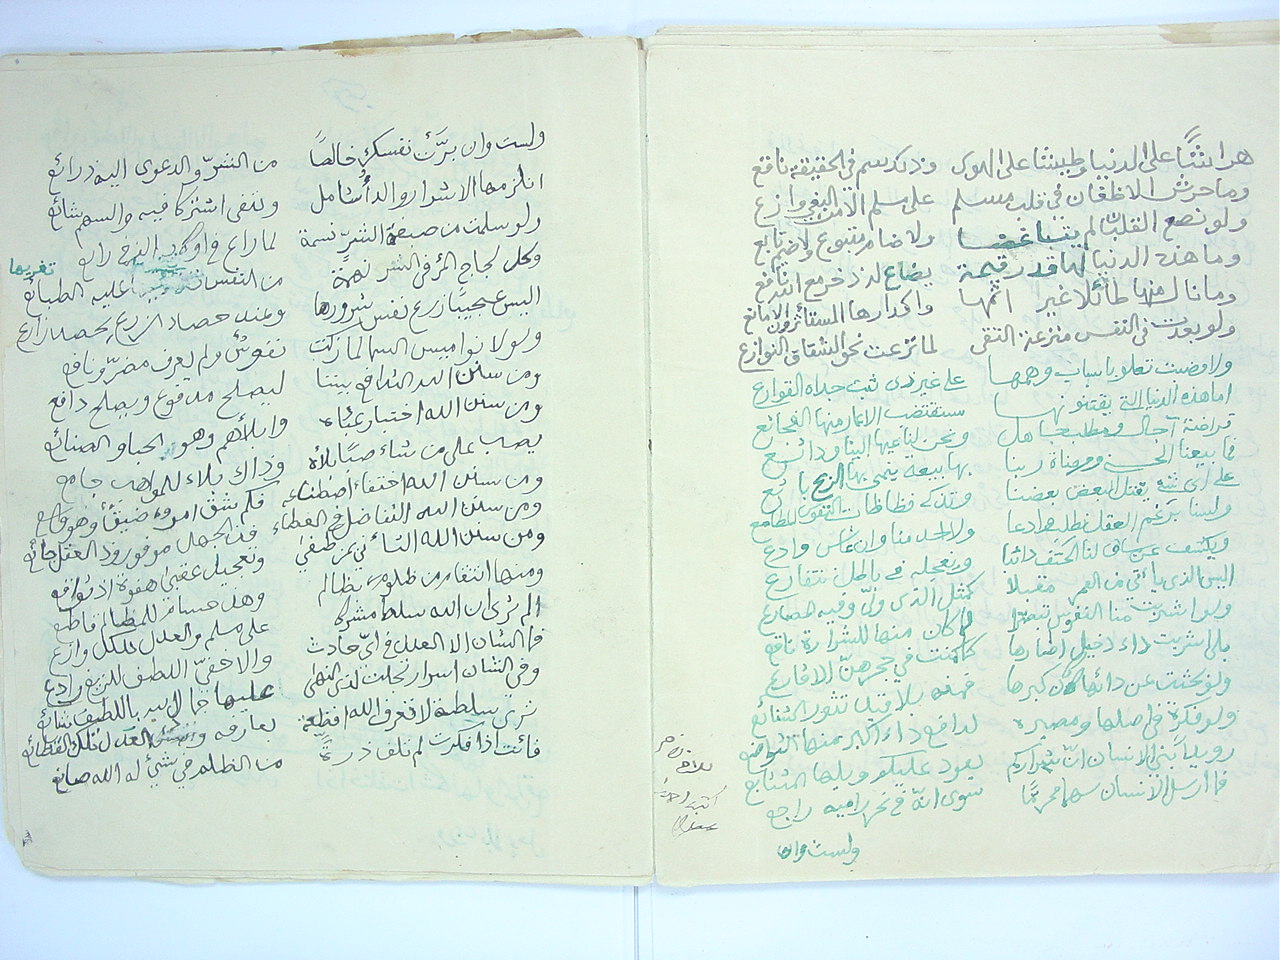 هراشًا على الدنيا وطيشا على الهوى وذلك سم في الحقيقة ناقع
وما حرش الاظغان في قلب مسلم على سلم الا من البغي وازع
ولو نصع القلبان لم يتباغضا ولا ضام متبوع ولا ضيم تابع
وما هذه الدنيا لها قدر قيمة يضاع لها ذخر مع الله نافع
وما نال منها طائلا غير اثمها واكدارها المستأثرون
ولو بعدت في النفس منزعة التقى لما نزعت نحو الشقاق النوازع
ولا رضيت تعلو باسباب وهمها على غير دين ثبت القوارع
اما هذه الدنيا التي يقتنونها ستقتضب الاعمار منها الفجائع
قراضة آجال ومطلبها هل ونحن لناعيها الينا ودائع
فما بيعنا الحسنى ومرضاة ربنا بها بيعة يحظى بها الربح بائع
على اي شيء يقتل البعض بعضنا وتذكى فظاظات النفوس المطامع
ولسنا برغم العقل نطلب رادعا ولا احد منا وان عاش وادع
ويكشف عن ساق لنا الحتف دائبا ونعجله في باطل نتقارع
اليس الذي يأتي من العمر مقبلا كمثل الذي ولى وفيه مصارع
ولو اشربت منا النفوس تبصرا لما كان منها للشرارة ناقع
بلى اشربت داء دخيل اضارها كما كمنت في جحرهن الافارع
ولو بحثت عن دائها كان كبرها فمنه بلا قيل تثور الشنائع
ولو فكرة في اصلها ومصيره لدافع داء الكبر منها التواضع
رويدًا بني الانسان ان شراركم يعود عليكم وبلها المتتابع
فما ارسل الانسان سهما محرمًا سوى انه في نحر راميه راجع
ولست وان
ولست وان برّأت نفسك خالصًا من الشرّ والدعوى اليه ذرائع
اتلزمها الاشرار والداء شامل وتنفى اشتراكا فيه والسهم شائع
ولو سلمت من صبغة الشر نسمة لما راع في اوكاره الفرخ رايع
وكل لجاج المرء في الشر نهمة من النفس تغريها عليه الطبائع
اليس عجيبا زرع نفس شرورها وعند حصاد الزرع يحصد زارع
ولولا نواميس السما لما زكت نفوس ولم يعرف مضرّ ونافع
ومن سنن الله التدافع بيننا ليصلح مدفوع ويصلح دافع
ومن سنن الله اختبار عباده وابلاهم وهو الحبا والصنائع
يصب على من شاء صبًا بلاءه وذاك بلاء للمواهب جامع
ومن سنن الله اختفاء اصطناعه فلم شق امرؤ ضيق وهو واسع
ومن سنن الله التفاضل في العطاء فذ الجهل موفور وذ العقل جائع
ومن سنن الله التأني بمن طغى وتعجيل عقبى هفوة اذ تواقع
ومنها انتقام من ظلوم بظالم وهل حسام للمظالم قاطع
الم تر ان الله سلط مشركا على مسلم والعدل للكل وازع
فما الشان الا العدل في اي حادث والا خفيّ اللطف للزيغ رادع
وفي الشان اسرار تجلت لذي النهى عليها جمال لاسير باللطف شائع
ترى سلطة لا تعرف الله افظعت بعارفه وفق العدل تلك الفظائع
فانت اذا فكرت لم تلف ذرة من الظلم في شيئ له الله صانع